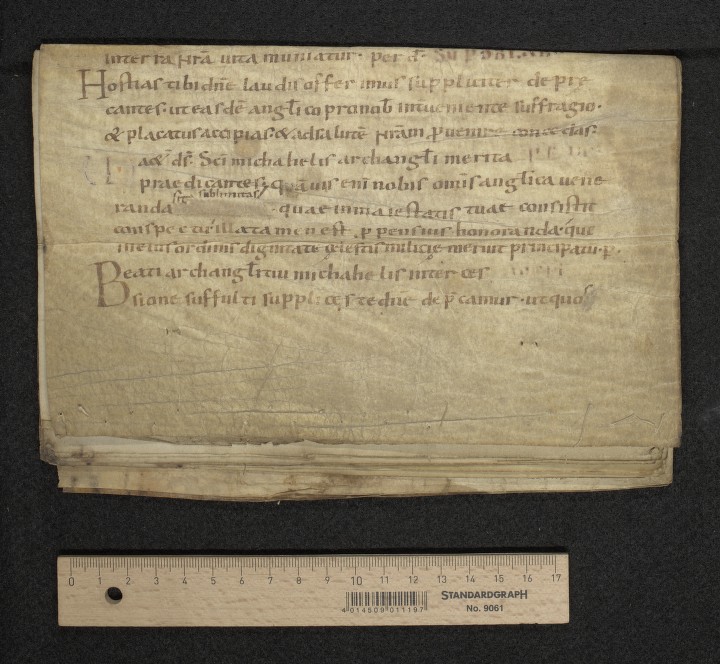 inter ra nr̄a uita muniatur · per d̄ · Sup
Hostias tibi dn̄e laudis offerimus suppliciter depre
cantes · ut easdē angl̄ico pronob̄ interueniente suffragio ·
& placatus accipias · & ad salutē nr̄am ꝑuenire concedas ·
a&̄ · ds̄ · Sc̄i michahelis archangl̄i merita
praedicantes · quāuis enī nobis om̄is angl̄ica uene
sublimitas
randa · quae inmaiestatis tuae consistit
conspectu · illa tamen est ꝓpensius honoranda · que
ineius ordinis dignitate cęlestis militię meruit principatū · ꝑ ·
Beati archangl̄i tui michahelis interces
sione suffulti supplices te dn̄e dep̄camur · ut quos
0 1 2 3 4 5 6 7 8 9 10 11 12 13 14 15 16 17
4 014509 011197
STANDARDGRAPH
No. 9061